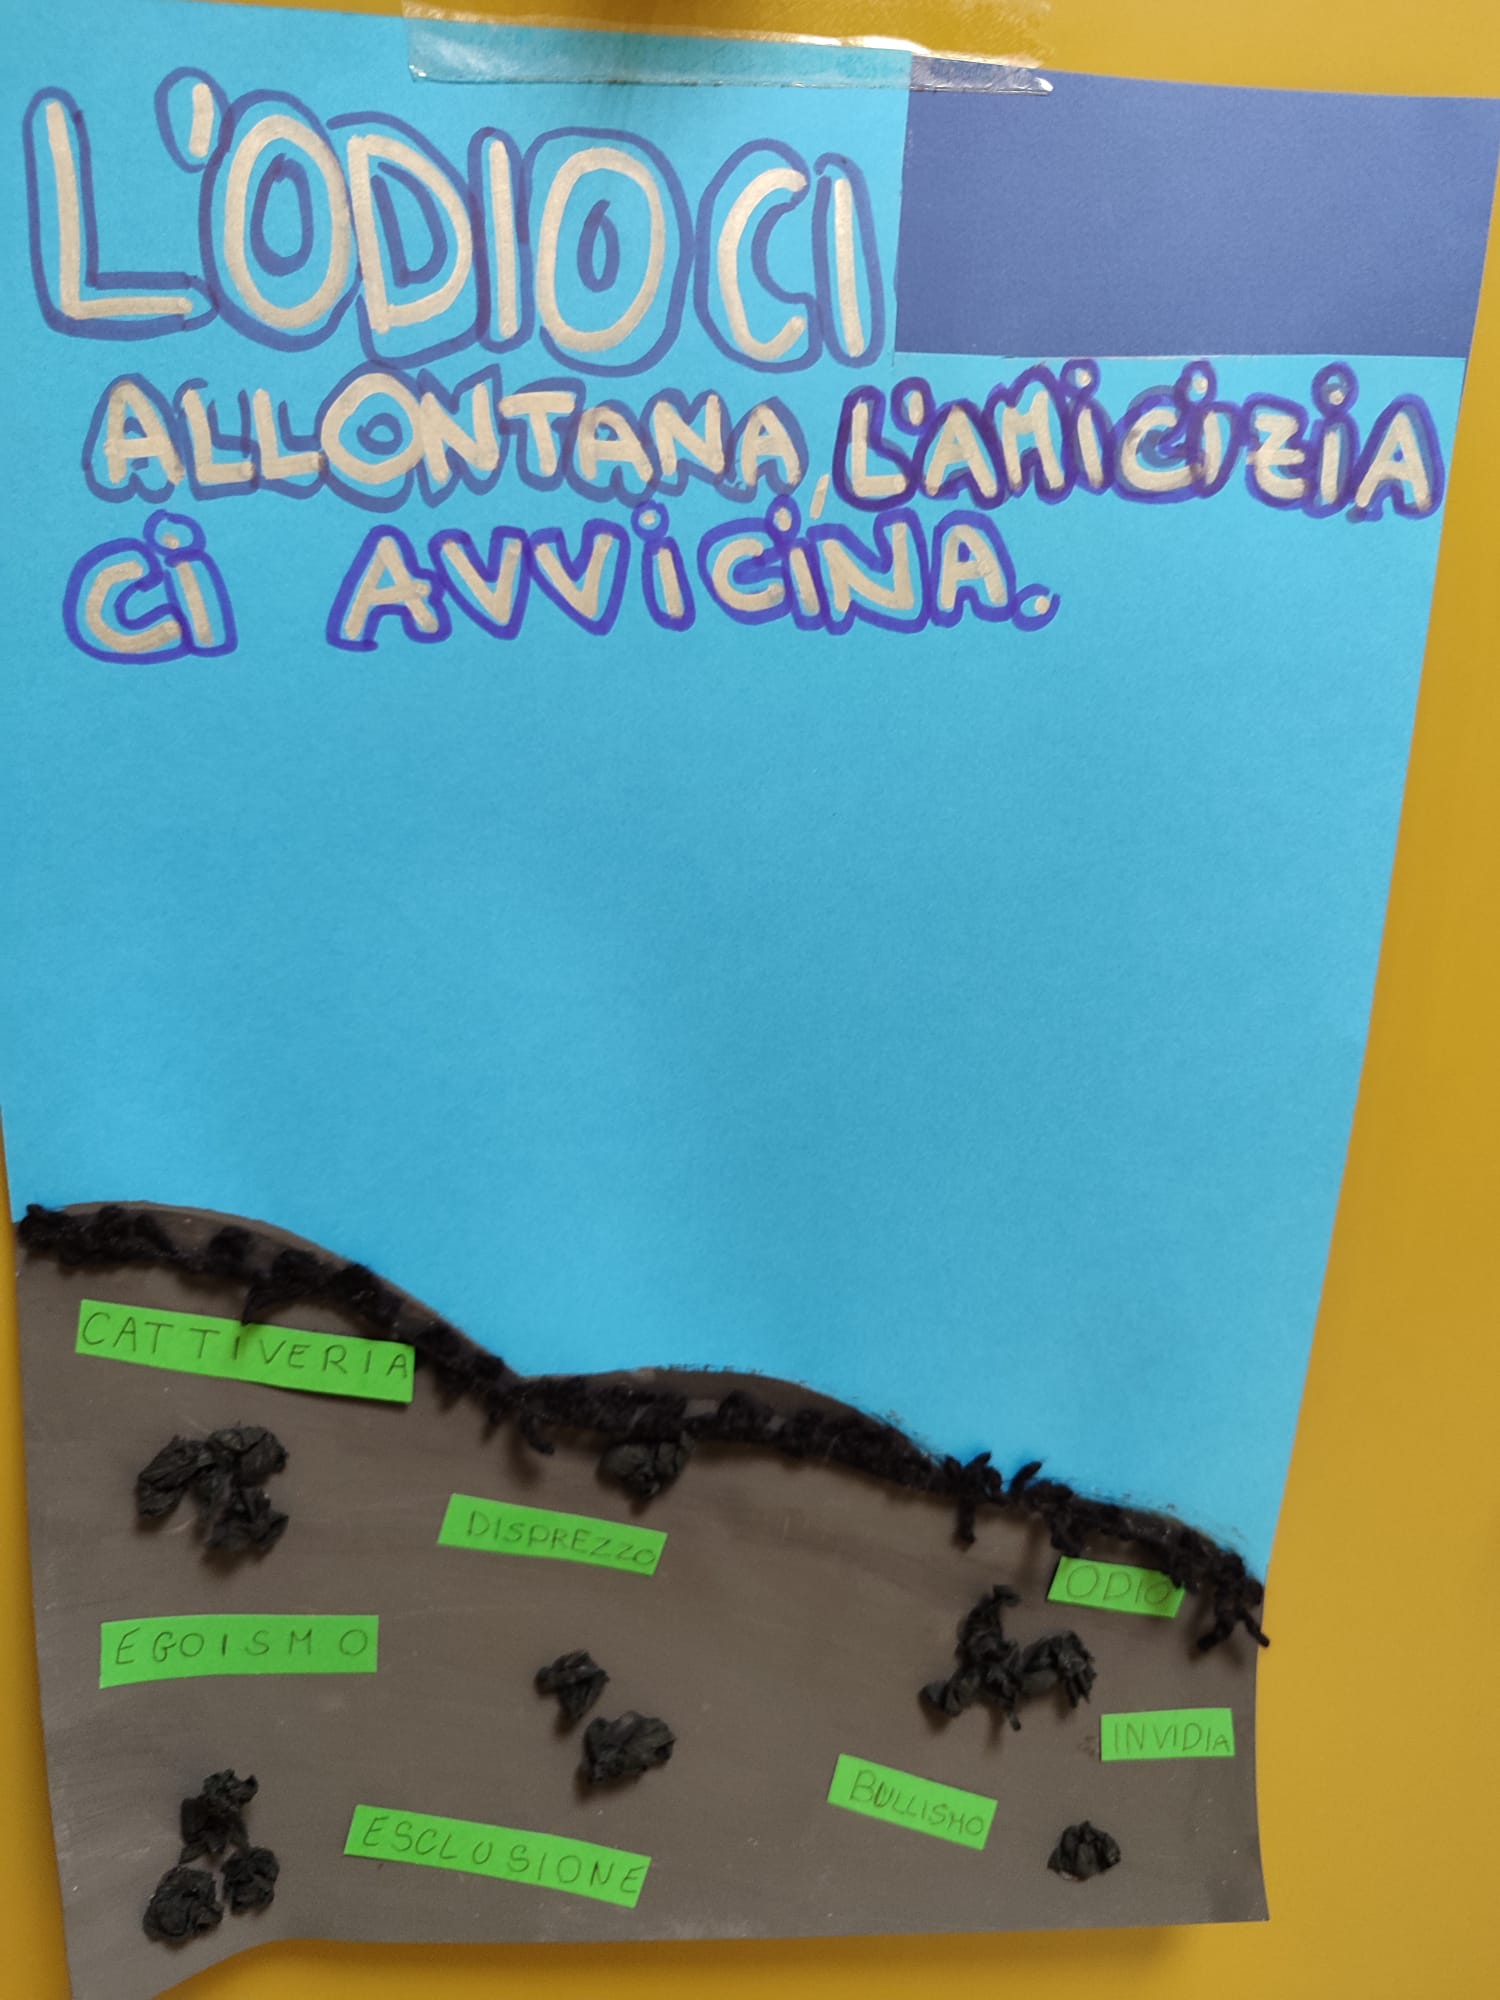 L'ODIO CI
ALLONTANA, L'AMiCiZiA
Ci AVViCiNA.
CATTIVERIA
DISPREZZO
ODIO
EGOISMO
INVIDIA
BULLISMO
ESCLUSIONE